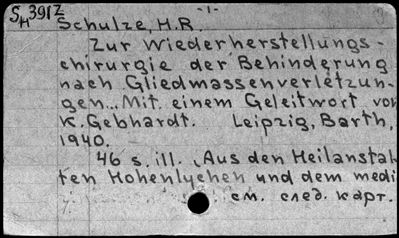 SH 3912
-1-
Schulze, H.R.
Zur Wiederherstellungs-
chirurgie der Behinderung
nach Gliedmassenverletzun-
gen... Mit einem Geleitwort von
K. Gebhardt. Leipzig, Barth,
1940.
46 s. ill. (Aus den Heilanstal-
ten Hohenlychen und dem medi
см. след. карт.